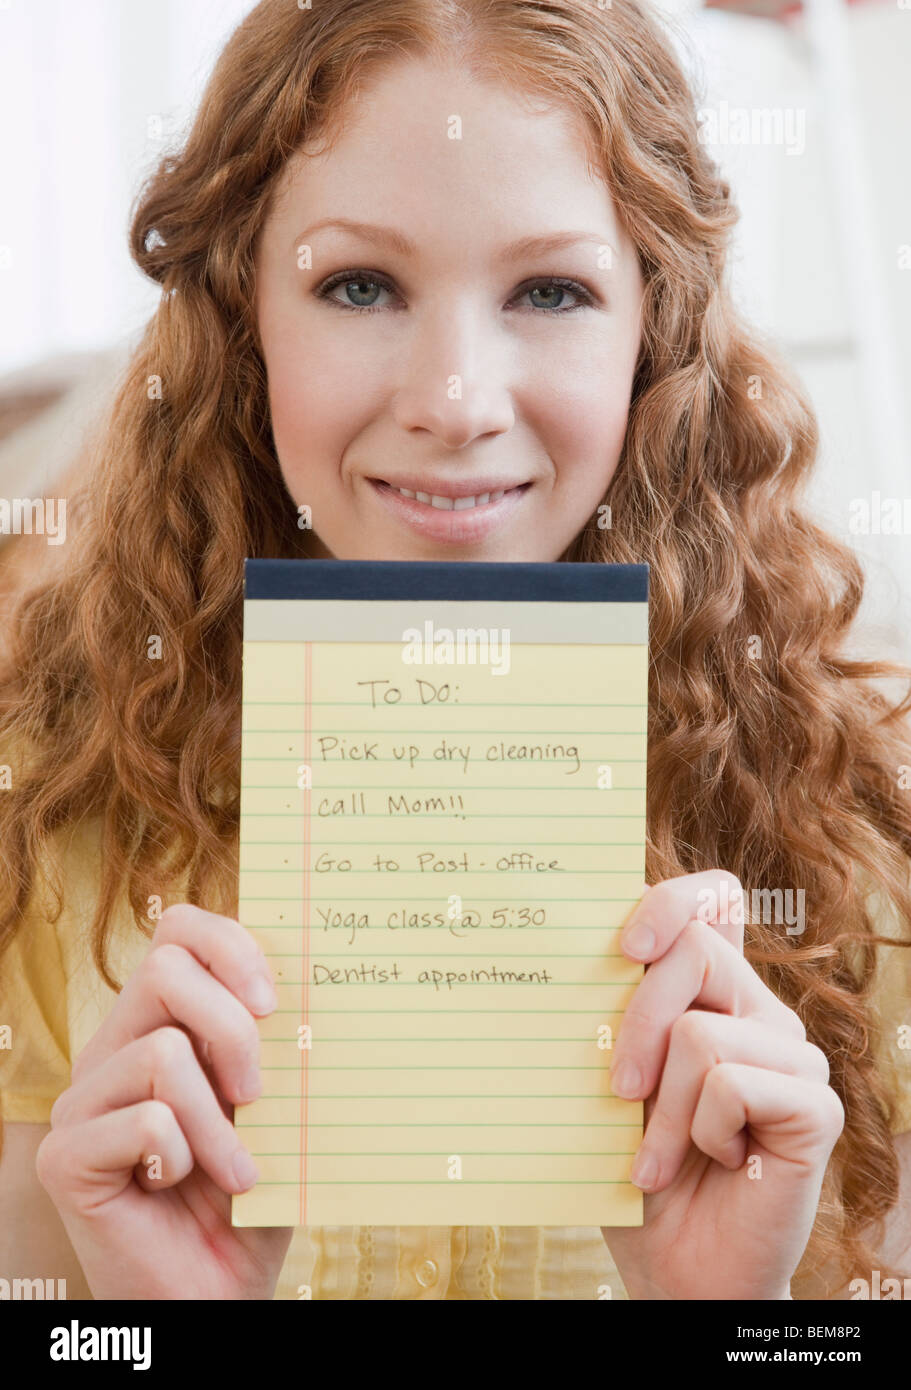 To Do:
· Pick up dry cleaning
· call Mom!!
· Go to Post-office
· Yoga class @ 5:30
· Dentist appointment
alamy
a
alamy stock photo
BEM8P2
www.alamy.com